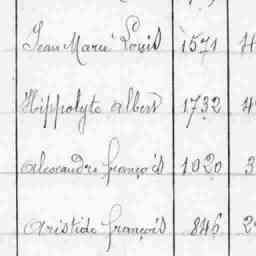 Jean Marie Louis 1571
Hippolyte Albert 1732
Alexandre François 1020 3
Aristide François 846 2